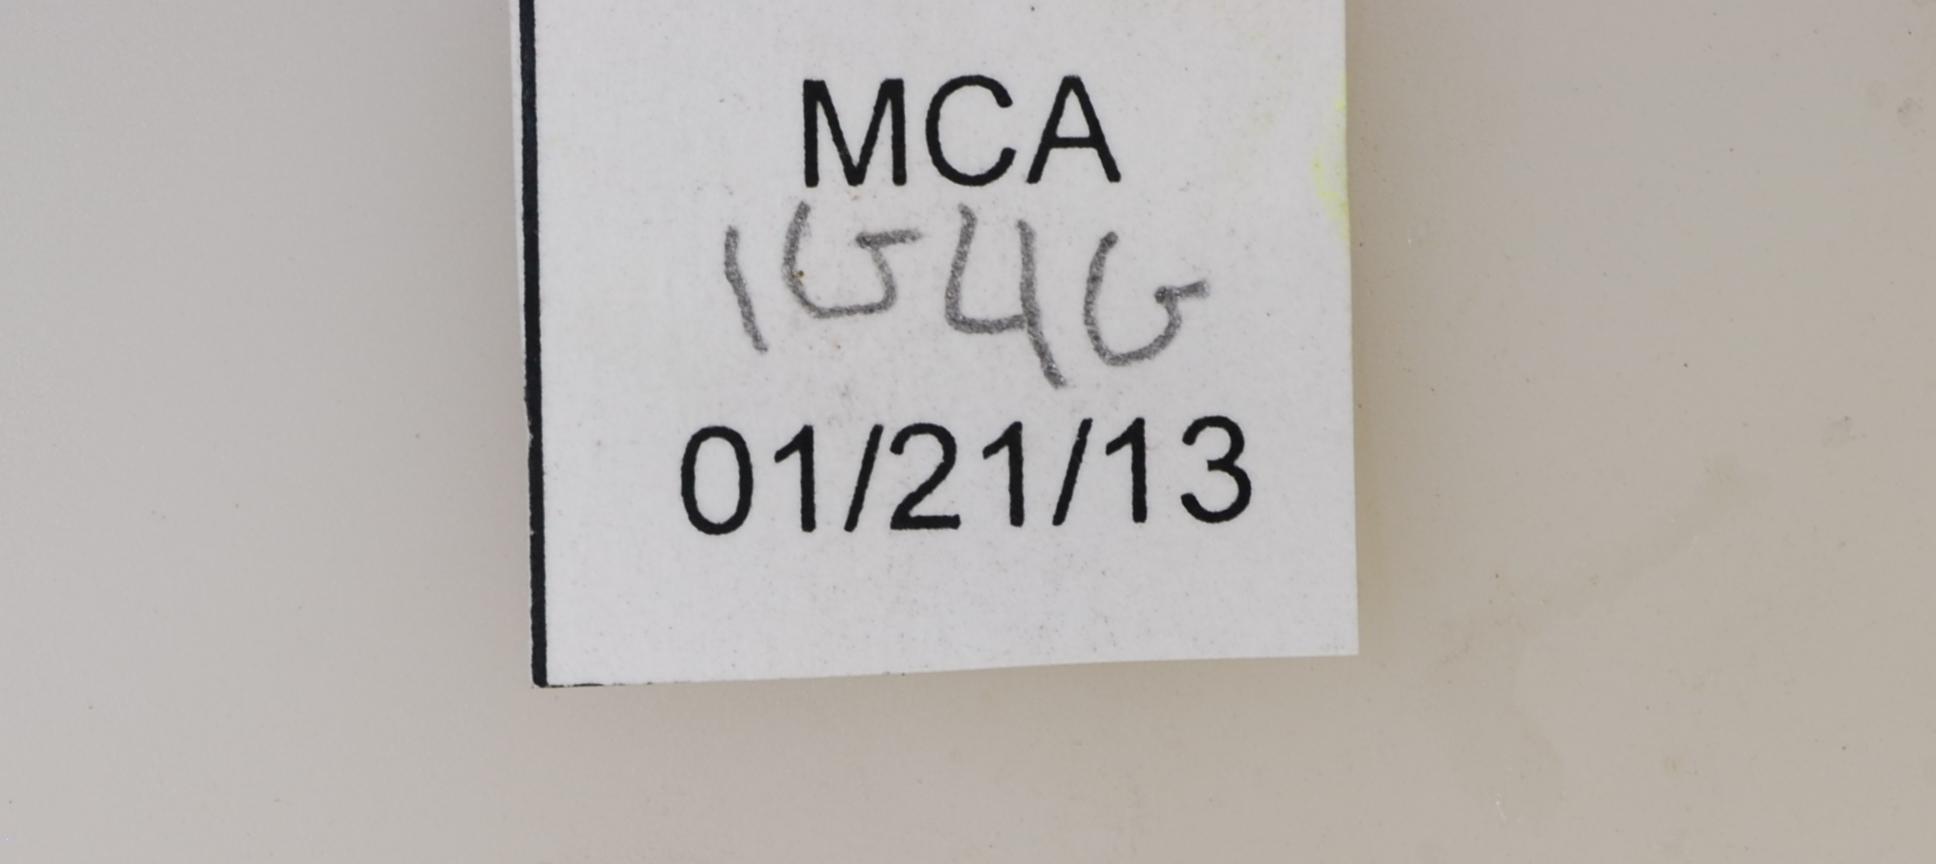 MCA
1G4G
01/21/13